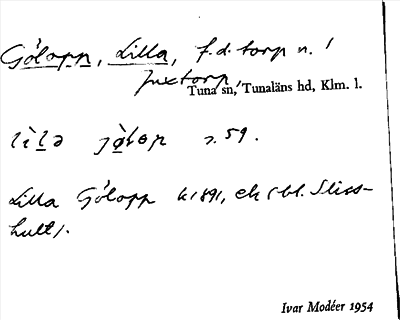 Gölopp, Lilla, f.d. torp u. /
juxtorp,
Tuna sn, Tunaläns hd, Klm. l.
lìlə jø̀lɵp s. 59.
Lilla Gölopp k 1891, ek (bl. Sliss-
hult).
Ivar Modéer 1954